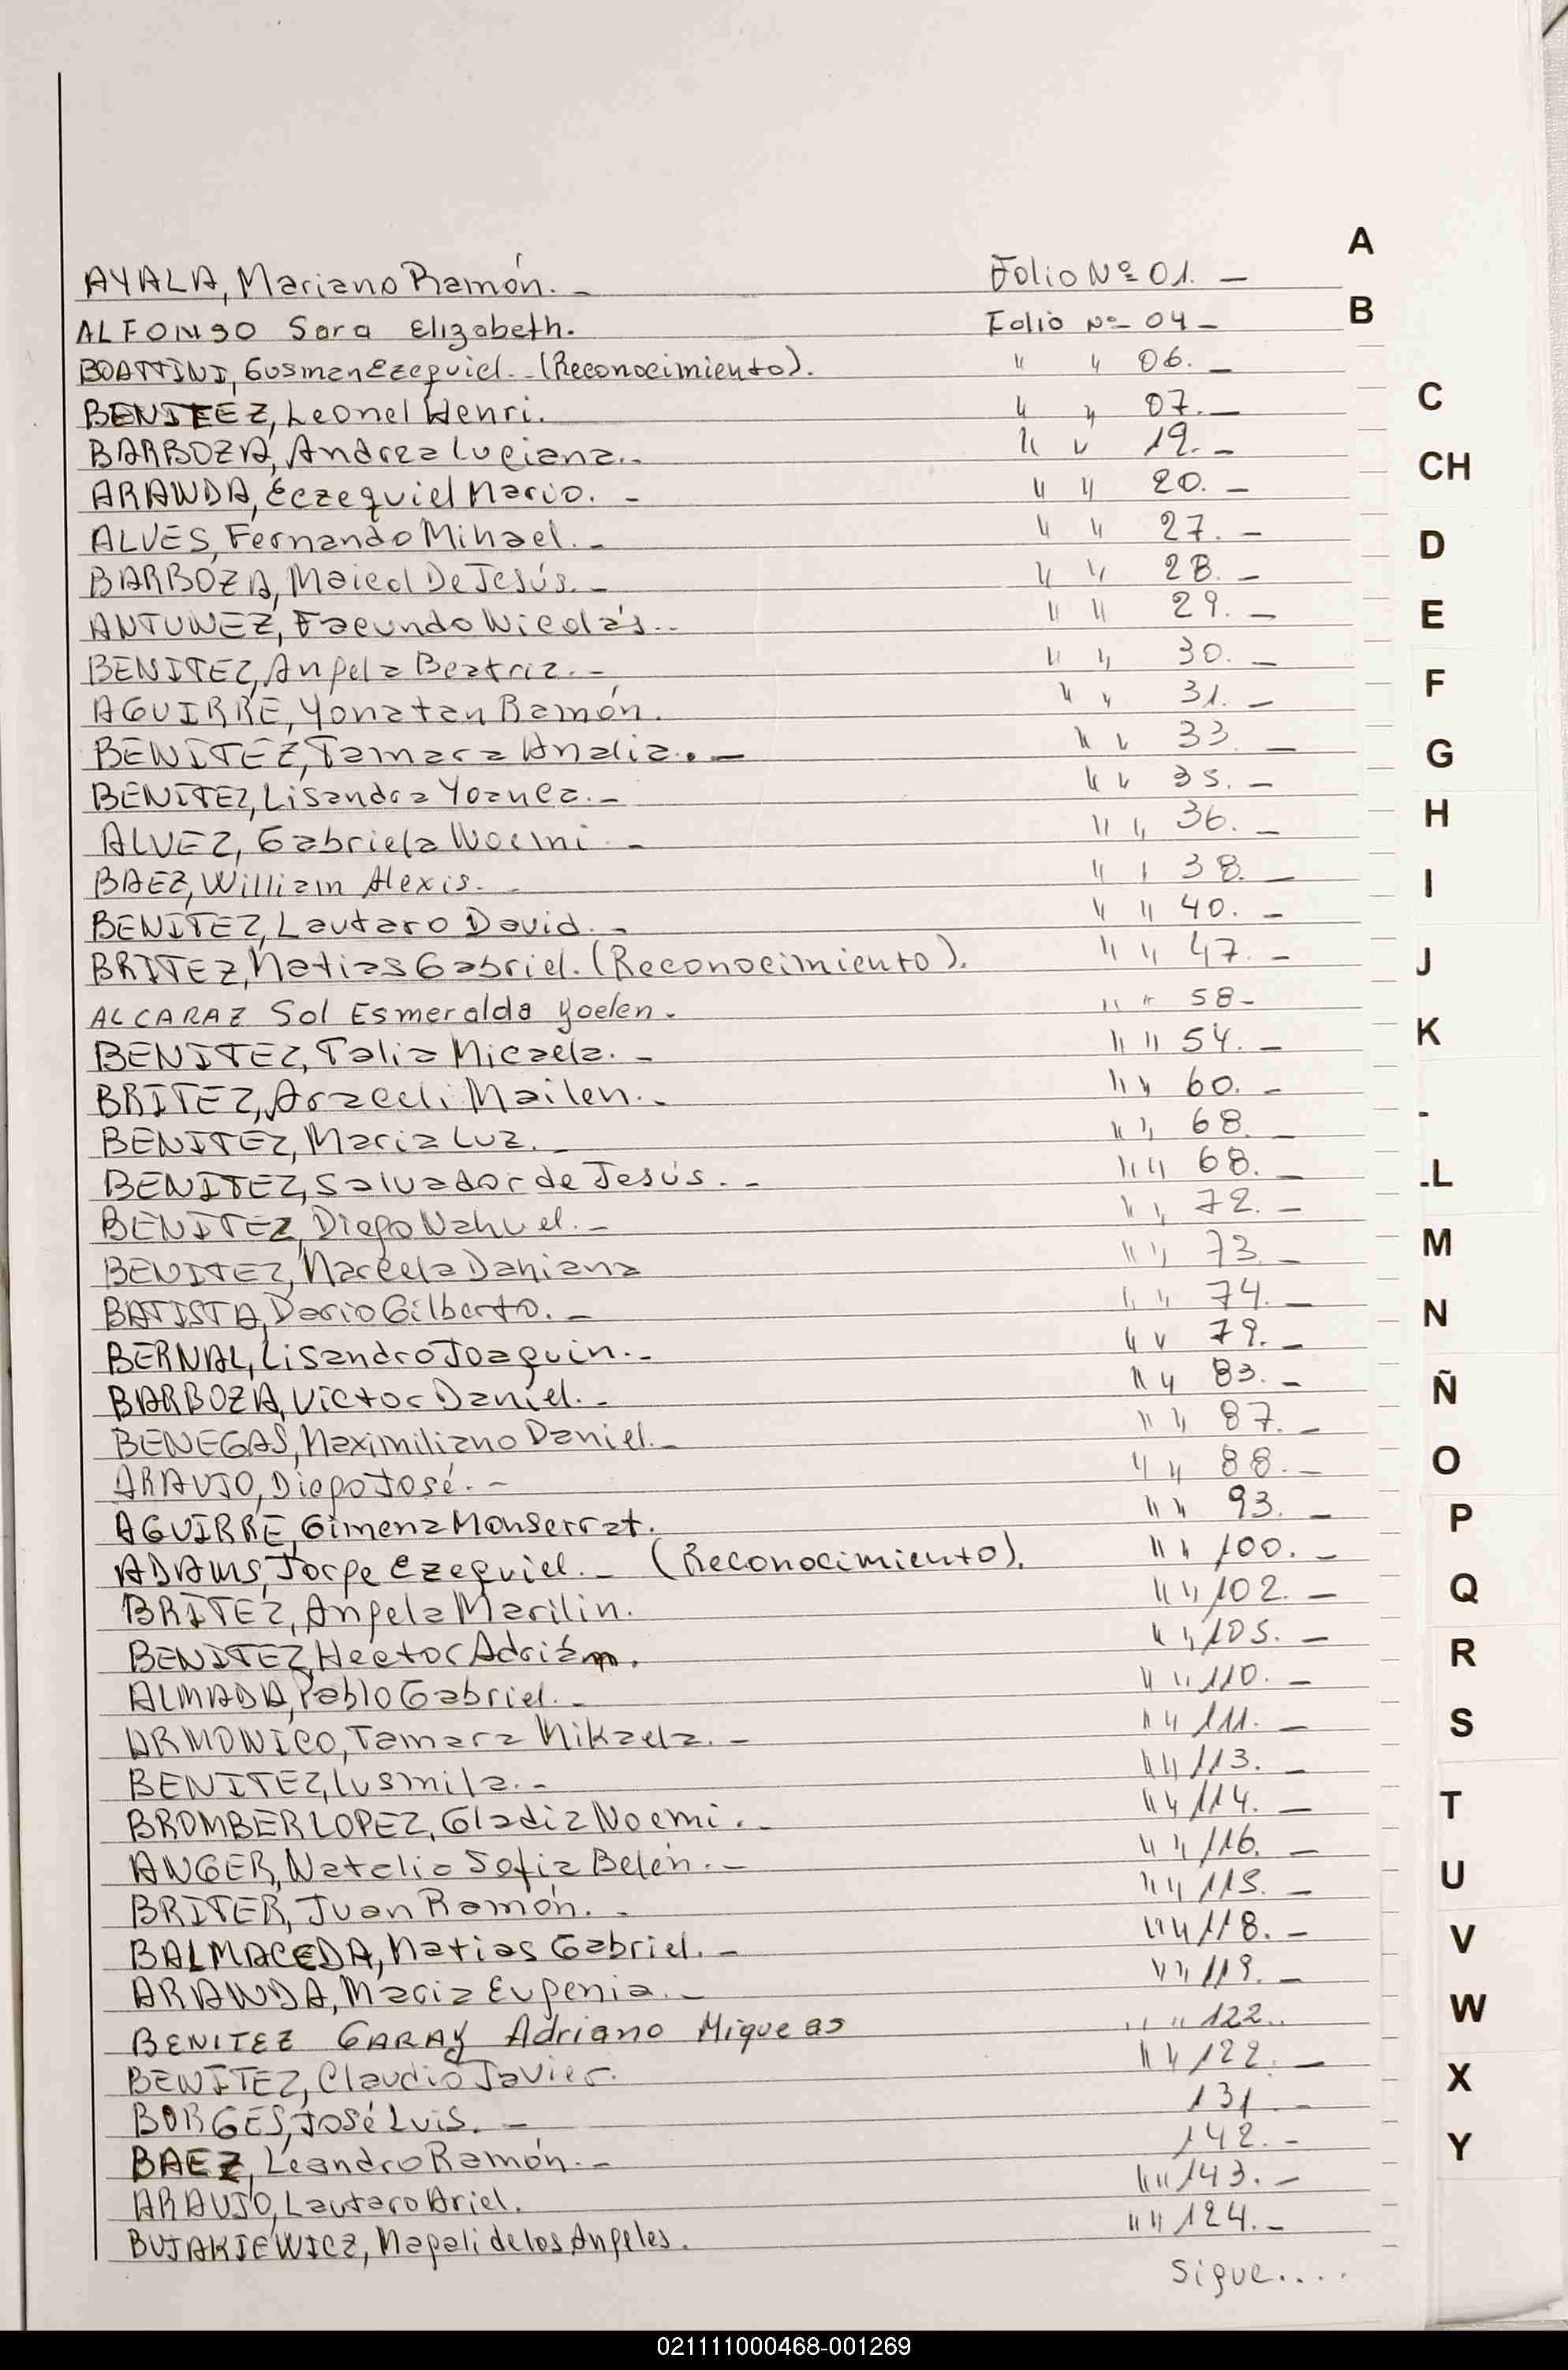 A
AYALA, Mariano Ramón. - Folio Nº 01. -
B
ALFONSO Sara Elizabeth. Folio Nº 04 -
BOATTINI, Gusman Ezequiel. - (Reconocimiento). " " 06. -
BENITEZ, Leonel Henri. " " 07. -
C
BARBOZA, Andrea Luciana. - " " 19. -
CH
ARANDA, Eczequiel Mario. - " " 20. -
ALVES, Fernando Mihael. - " " 27. -
D
BARBOZA, Maicol De Jesús. - " " 28. -
ANTUNEZ, Facundo Nicolás. - " " 29. -
E
BENITEZ, Angela Beatriz. - " " 30. -
F
AGUIRRE, Yonatan Ramón. " " 31. -
BENITEZ, Tamara Analia. - " " 33 -
G
BENITEZ, Lisandra Yoanea. - " " 35. -
H
ALVEZ, Gabriela Noemi - " " 36. -
BAEZ, William Alexis. - " " 38. -
I
BENITEZ, Lautaro David. - " " 40. -
BRITEZ, Matias Gabriel. (Reconocimiento). " " 47. -
J
ALCARAZ Sol Esmeralda Yoelen. " " 58 -
K
BENITEZ, Talia Micaela. - " " 54. -
BRITEZ, Araceli Mailen. - " " 60. -
-
BENITEZ, Maria Luz. - " " 68. -
L
BENITEZ, Salvador de Jesús. - " " 68. -
BENITEZ, Diego Nahuel. - " " 72. -
M
BENITEZ, Marcela Dahiana " " 73. -
N
BATISTA, Dario Gilberto. - " " 74. -
BERNAL, Lisandro Joaquin. - " " 79. -
Ñ
BARBOZA, Victor Daniel. - " " 83. -
BENEGAS, Maximiliano Daniel. - " " 87. -
O
ARAUJO, Diego José. - " " 88. -
P
AGUIRRE, Gimena Monserrat. " " 93. -
ADAMS, Jorge Ezequiel. - (Reconocimiento). " " 100. -
Q
BRITEZ, Angela Marilin. " " 102. -
R
BENITEZ, Hector Adrián. " " 105. -
ALMADA, Pablo Gabriel. - " " 110. -
S
ARMONICO, Tamara Mikaela. - " " 111. -
BENITEZ, Lusmila. - " " 113. -
T
BROMBER LOPEZ, Gladiz Noemi. - " " 114. -
U
ANGER, Natalia Sofia Belén. - " " 116. -
BRITER, Juan Ramón. - " " 115. -
V
BALMACEDA, Matias Gabriel. - " " 118. -
ARANDA, Maria Eugenia. - " " 119. -
W
BENITEZ GARAY Adriano Miqueas " " 122..
BENITEZ, Claudio Javier. " " 122. -
X
BORGES, José Luis. - 131. -
BAEZ, Leandro Ramón. - 142. -
Y
ARAUJO, Lautaro Ariel. " " 143. -
BUJAKIEWICZ, Magali de los Angeles. " " 124. -
Sigue....
021111000468-001269